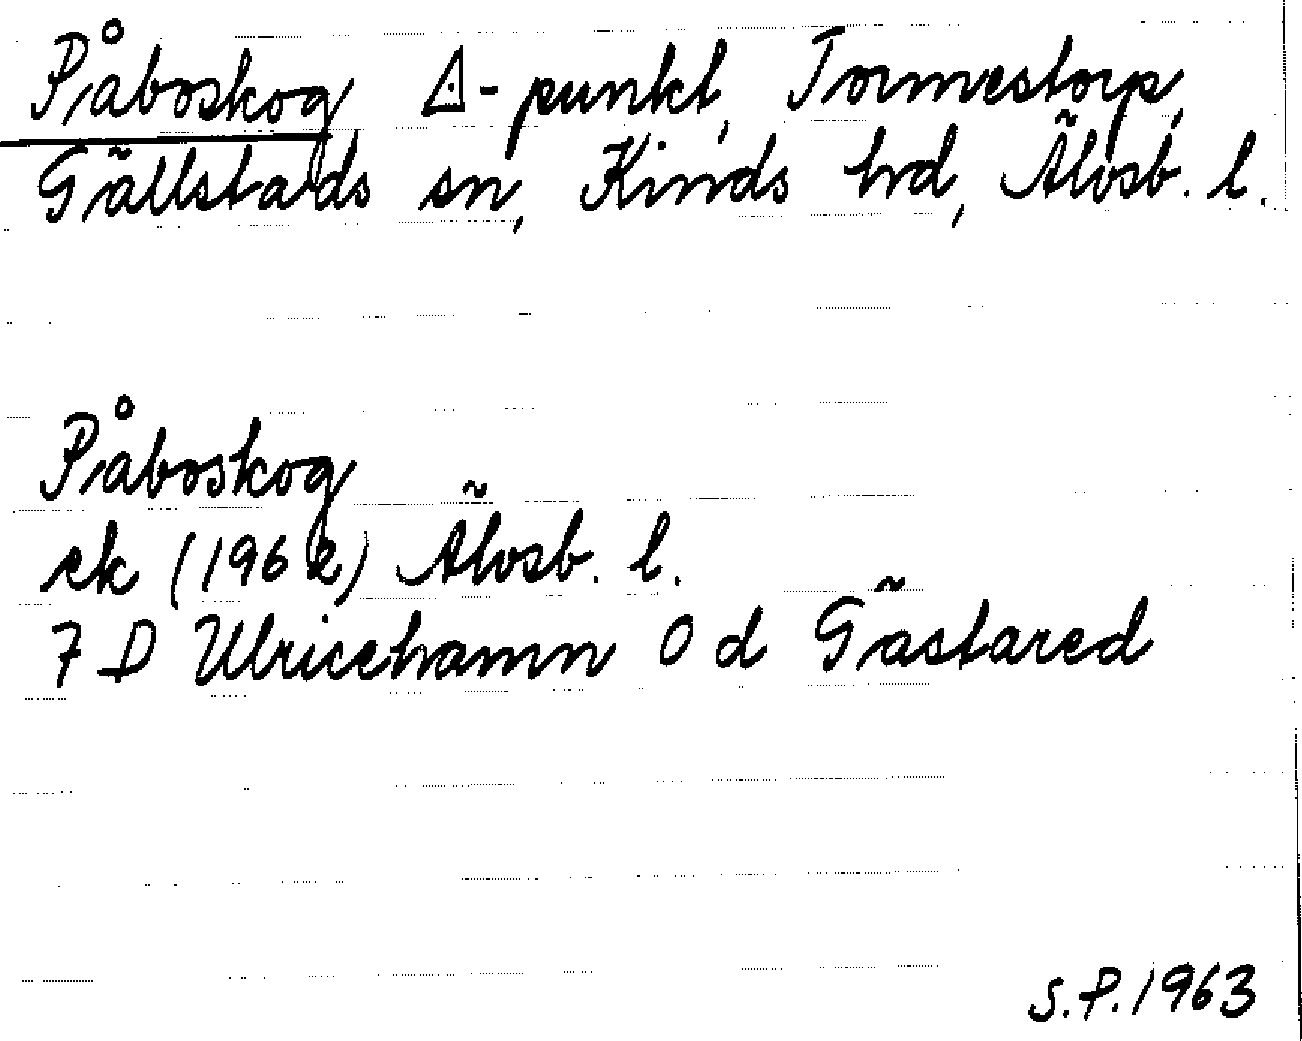 Påboskog △-punkt, Tormestorp,
Gällstads sn, Kinds hd, Älvsb. l.
Påboskog
ek (1962) Älvsb. l.
7 D Ulricehamn 0 d Gästared
S.P. 1963